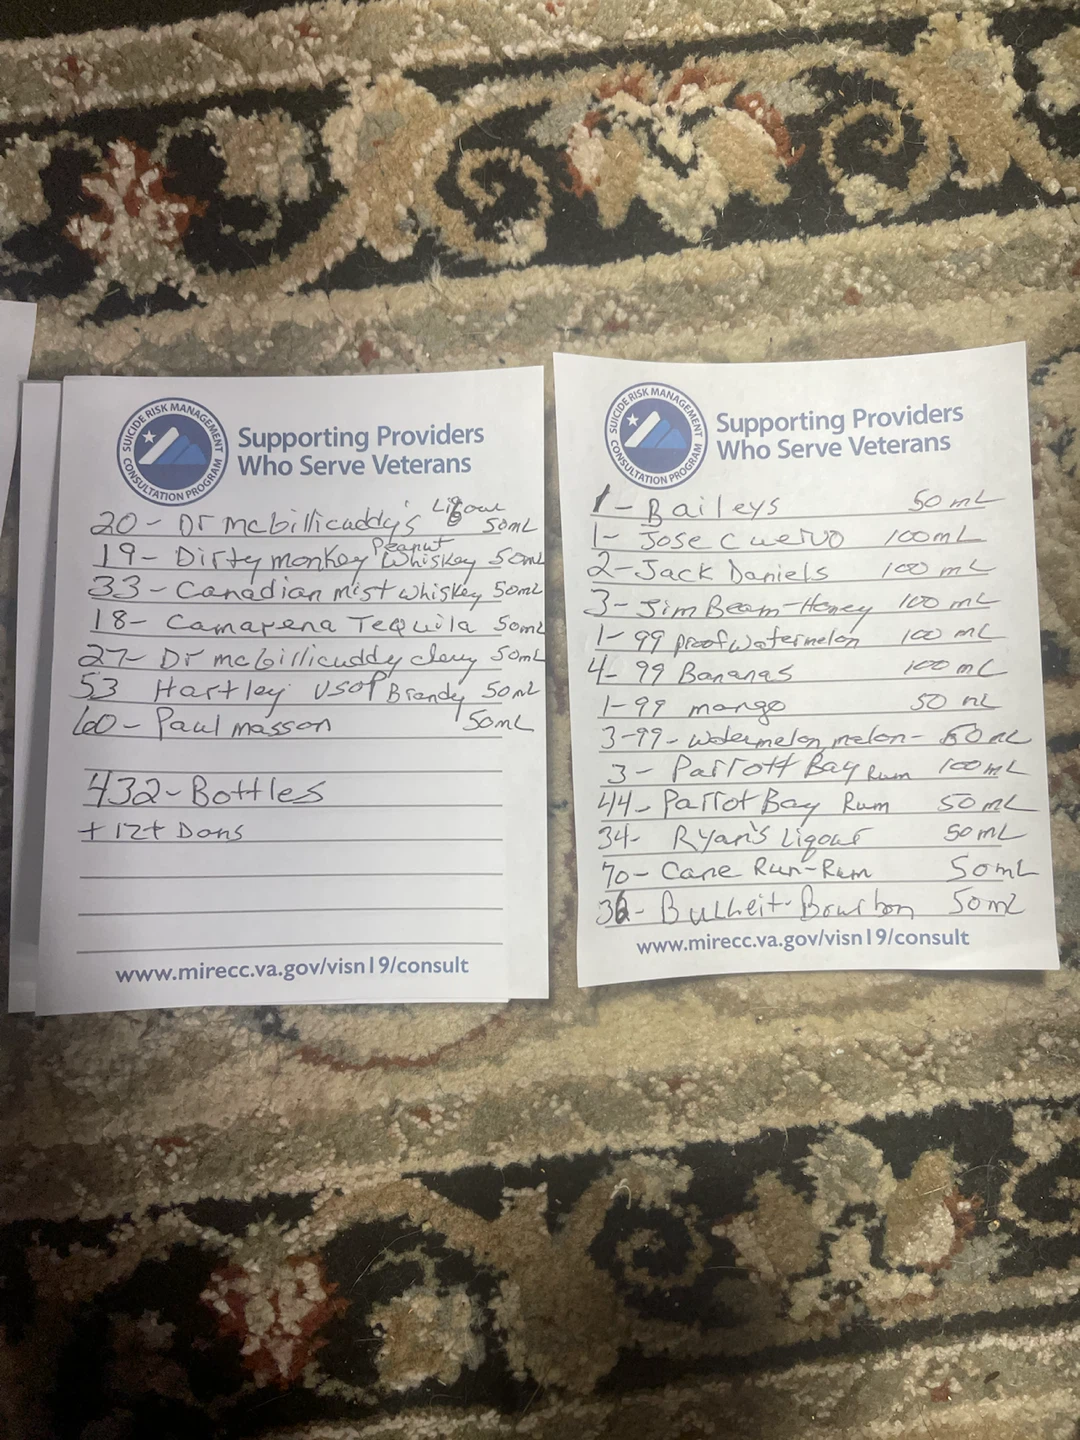 SUICIDE RISK MANAGEMENT
CONSULTATION PROGRAM
Supporting Providers
Who Serve Veterans
20 - Dr mcgillicuddy's Liqour 50mL
19 - Dirty monkey Peanut Whiskey 50mL
33 - Canadian mist whiskey 50mL
18 - Camarena Tequila 50mL
27 - Dr mcgillicuddy 50mL
53 Hartley VSOP Brandy 50mL
60 - Paul masson 50mL
432 - Bottles
+ 12+ Dans
www.mirecc.va.gov/visn19/consult
SUICIDE RISK MANAGEMENT
CONSULTATION PROGRAM
Supporting Providers
Who Serve Veterans
1 - Baileys 50mL
1 - Jose Cuervo 100mL
2 - Jack Daniels 100mL
3 - Jim Beam - Honey 100mL
1 - 99 proof watermelon 100mL
4 - 99 Bananas 100mL
1 - 99 mango 50mL
3 - 99 - watermelon melon - 50mL
3 - Parrott Bay Rum 100mL
44 - Parrot Bay Rum 50mL
34 - Ryan's Liqour 50mL
70 - Cane Run - Rum 50mL
36 - Bulleit - Bourbon 50mL
www.mirecc.va.gov/visn19/consult